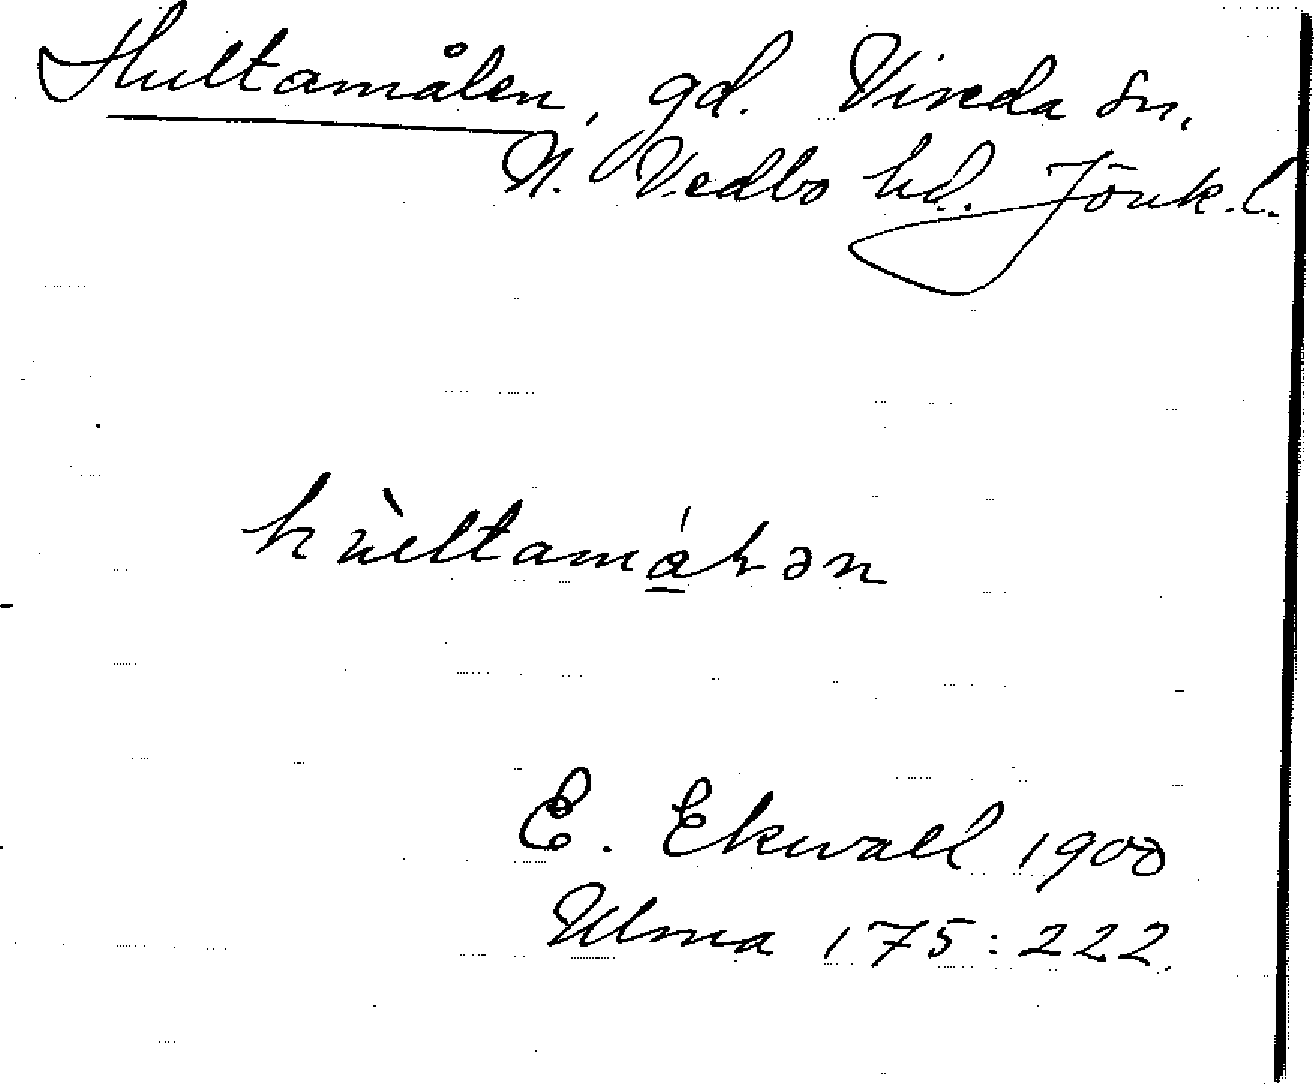 Hultamålen, gd. Vireda sn,
N. Vedbo hd. Jönk.l.
hùltamá̱lən
E. Ekwall 1900
Ulma 175:222.